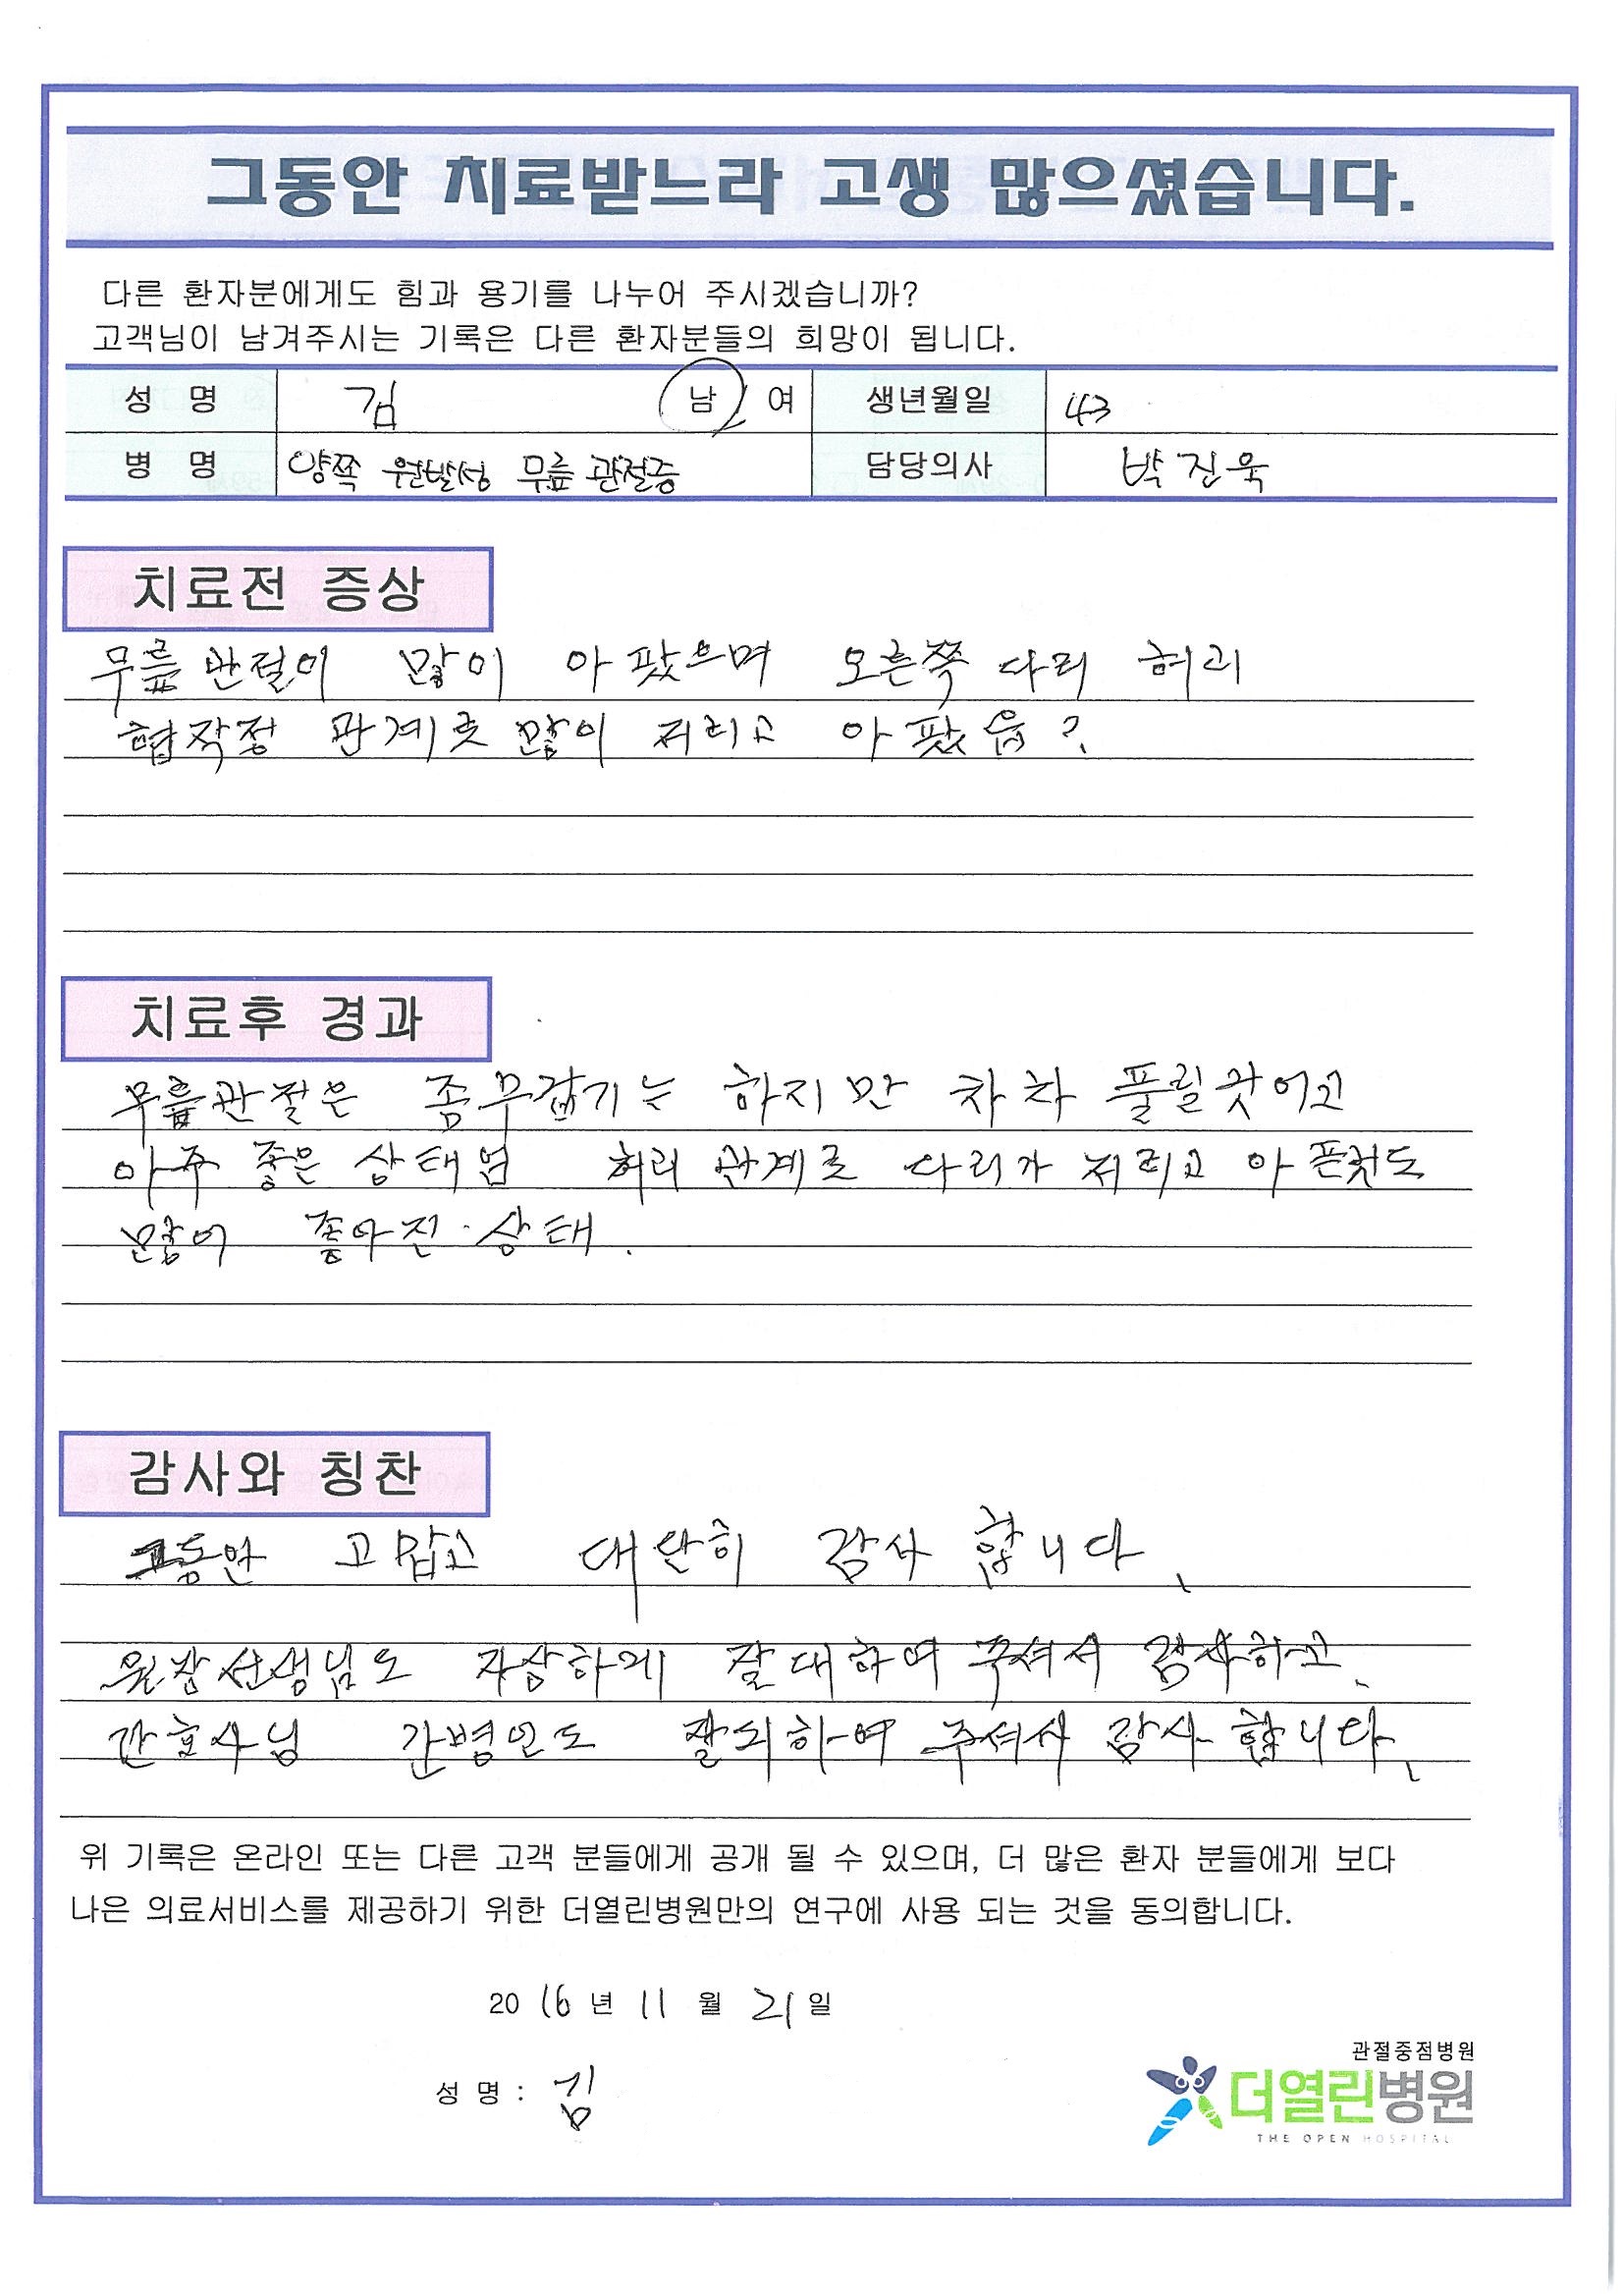 그동안 치료받느라 고생 많으셨습니다.
다른 환자분에게도 힘과 용기를 나누어 주시겠습니까?
고객님이 남겨주시는 기록은 다른 환자분들의 희망이 됩니다.
성 명 김 남 여 생년월일 43
병 명 양쪽 원발성 무릎 관절증 담당의사 박진욱
치료전 증상
무릎 관절이 많이 아팠으며 오른쪽 다리 허리
협착정 관계로 많이 저리고 아팠음?
치료후 경과
무릎관절은 좀무겁기는 하지만 차차 풀릴것이고
아주 좋은 상태임 허리 관계로 다리가 저리고 아픈것도
많이 좋아진 상태.
감사와 칭찬
그동안 고맙고 대단히 감사 합니다.
원장선생님도 자상하게 잘대하여 주셔서 감사하고.
간호사님 간병인도 잘되하여 주셔서 감사 합니다.
위 기록은 온라인 또는 다른 고객 분들에게 공개 될 수 있으며, 더 많은 환자 분들에게 보다
나은 의료서비스를 제공하기 위한 더열린병원만의 연구에 사용 되는 것을 동의합니다.
2016년 11월 21일
성 명 : 김
관절중점병원
더열린병원
THE OPEN HOSPITAL